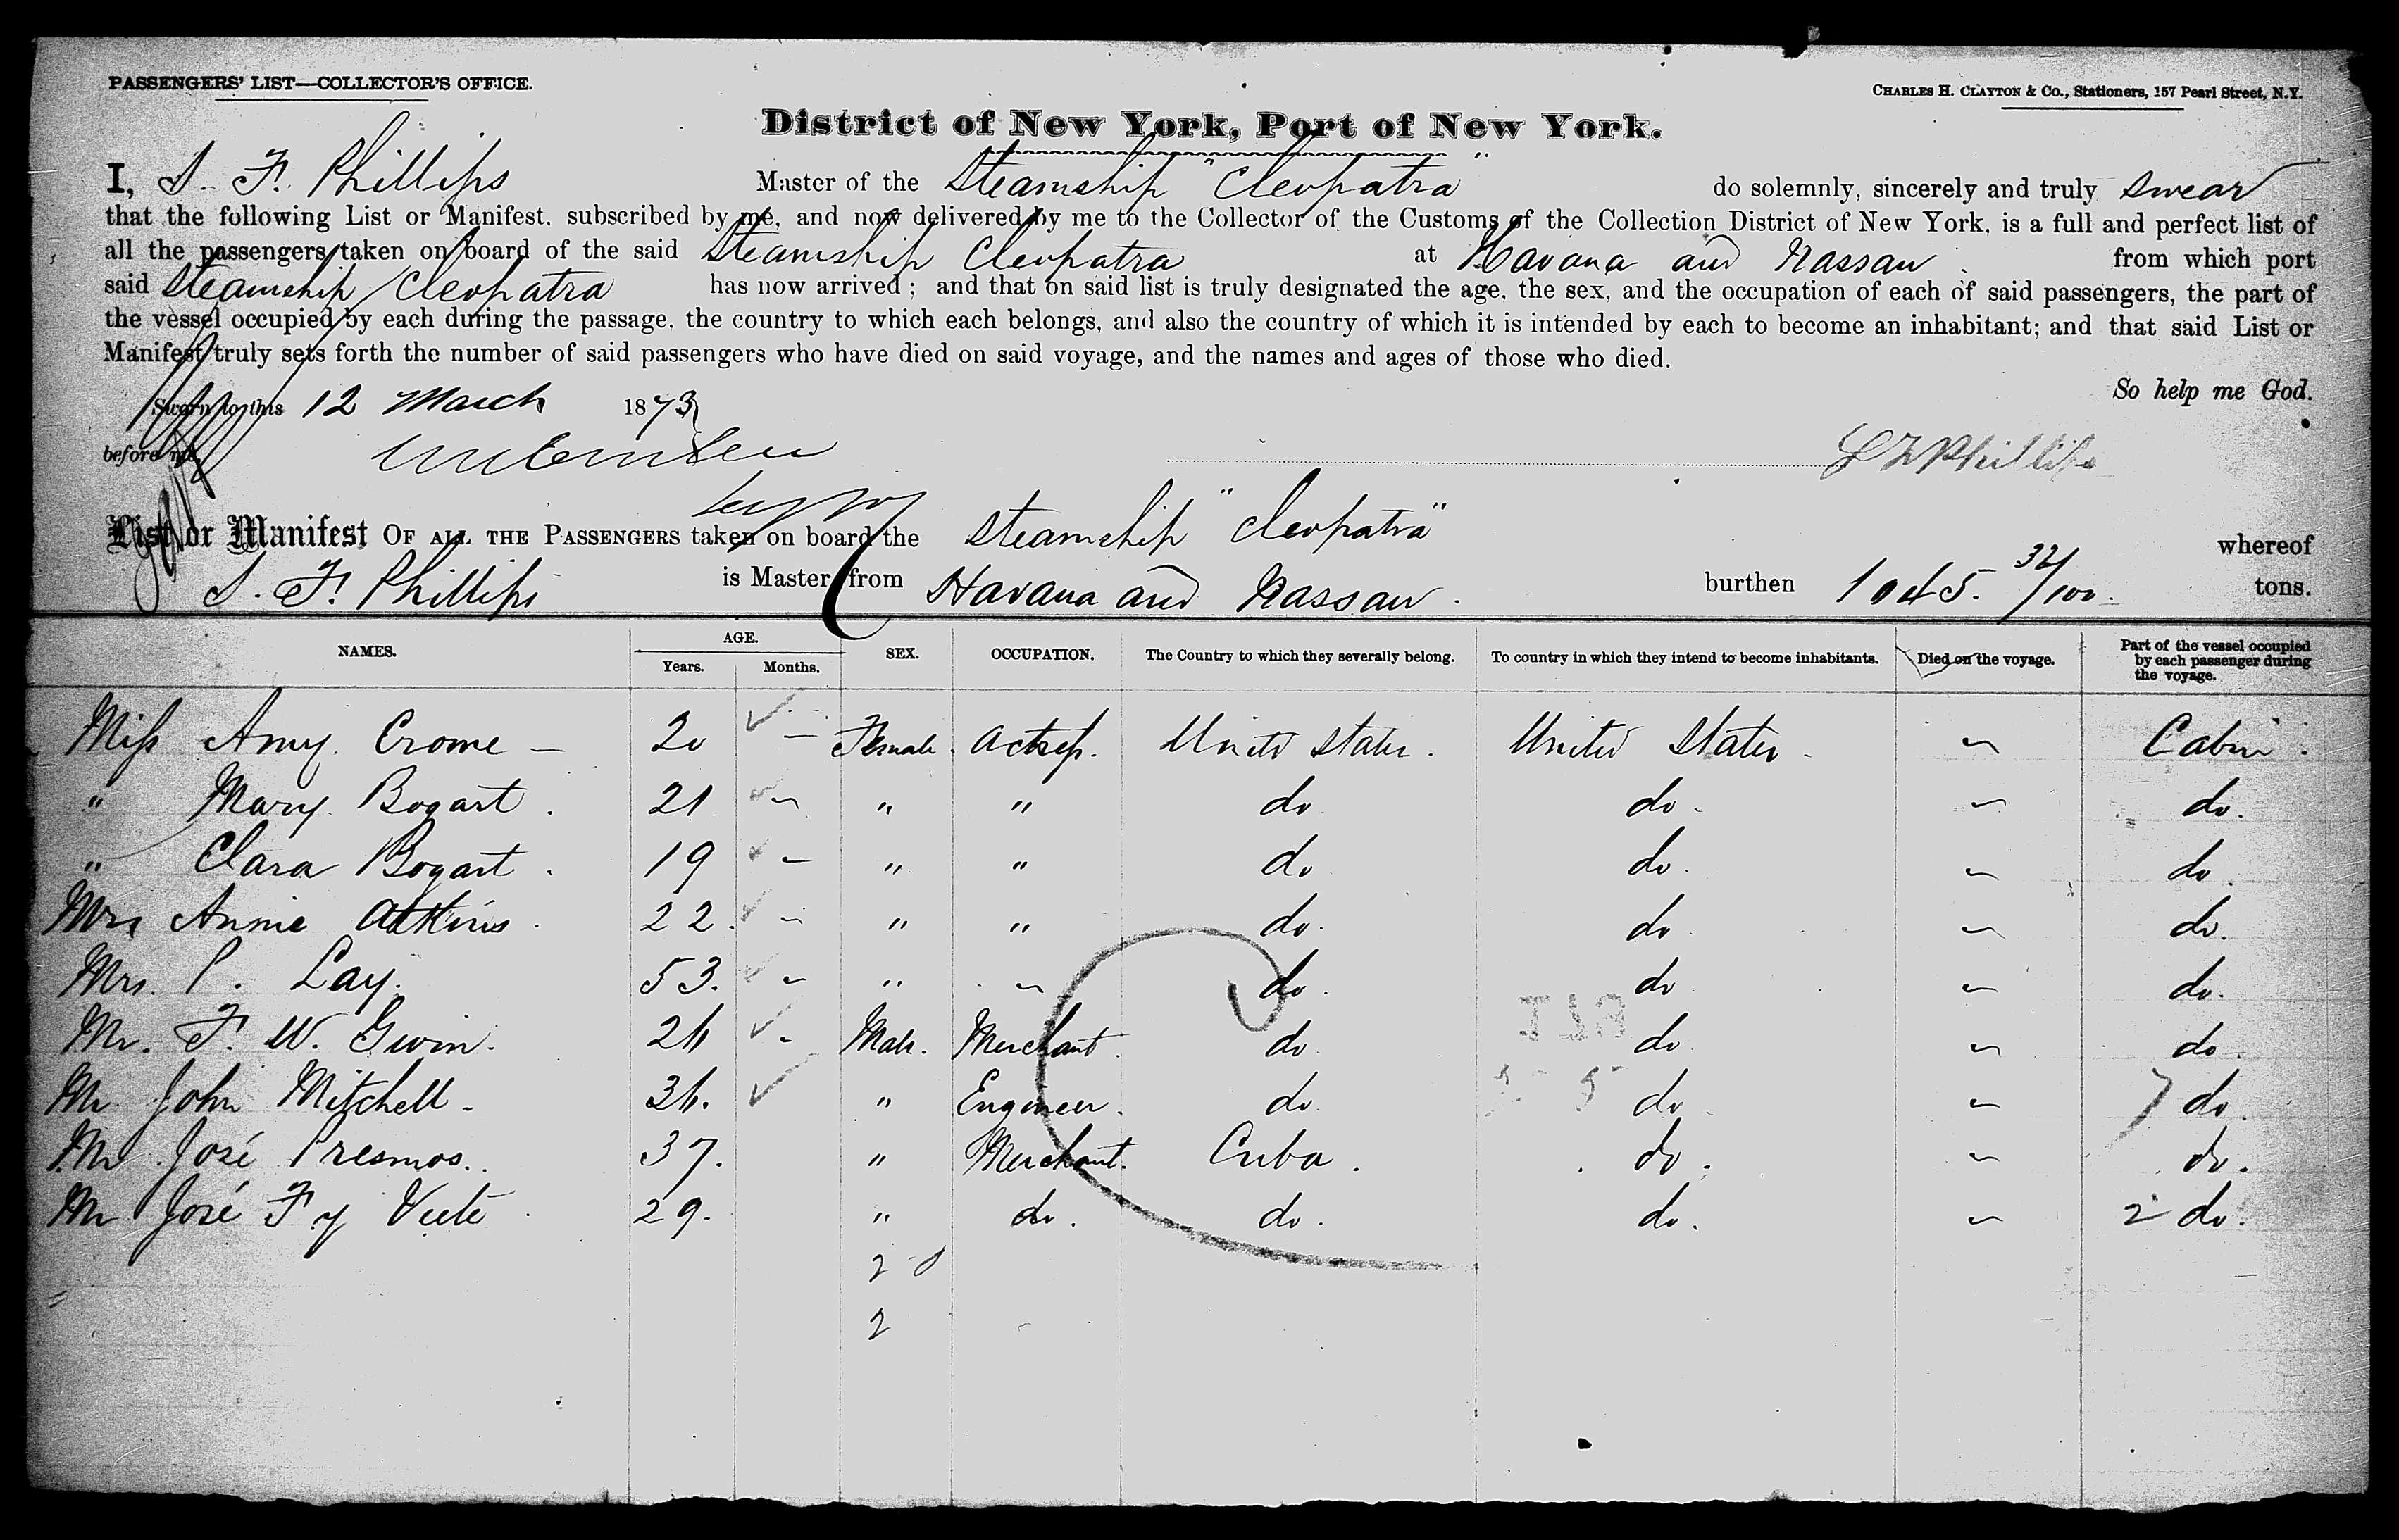 PASSENGERS' LIST—COLLECTOR'S OFFICE.
CHARLES H. CLAYTON & Co., Stationers, 157 Pearl Street, N.Y.
District of New York, Port of New York.
I, S. F. Phillips Master of the Steamship "Cleopatra" do solemnly, sincerely and truly swear
that the following List or Manifest, subscribed by me, and now delivered by me to the Collector of the Customs of the Collection District of New York, is a full and perfect list of
all the passengers taken on board of the said Steamship Cleopatra at Havana and Nassau from which port
said Steamship Cleopatra has now arrived; and that on said list is truly designated the age, the sex, and the occupation of each of said passengers, the part of
the vessel occupied by each during the passage, the country to which each belongs, and also the country of which it is intended by each to become an inhabitant; and that said List or
Manifest truly sets forth the number of said passengers who have died on said voyage, and the names and ages of those who died.
So help me God.
Sworn to this 12 March 1873
before me, Phillips
List or Manifest OF ALL THE PASSENGERS taken on board the Steamship "Cleopatra" whereof
S. F. Phillips is Master from Havana and Nassau. burthen tons.
NAMES. AGE. Years. Months. SEX. OCCUPATION. The Country to which they severally belong. To country in which they intend to become inhabitants. Died on the voyage. Part of the vessel occupied by each passenger during the voyage.
Miss Amy Crome – 20 – Female. Actress. United States. United States – Cabin.
" Mary Bogart. 21 – " " do do – do.
" Clara Bogart. 19 – " " do do. – do.
Mrs Annie Atkins. 22. – " " do. do – do.
Mrs. P. Lay. 53. – " – do. do – do.
Mr. F. W. Gwin. 26 – Male. Merchant. do. do – do.
Mr. John Mitchell – 36. " Engineer. do. do. – 7 do.
Mr José Presmos. 37. " Merchant. Cuba. do. – do.
Mr José F y 29. " do. do. do. – 2 do.
2
2